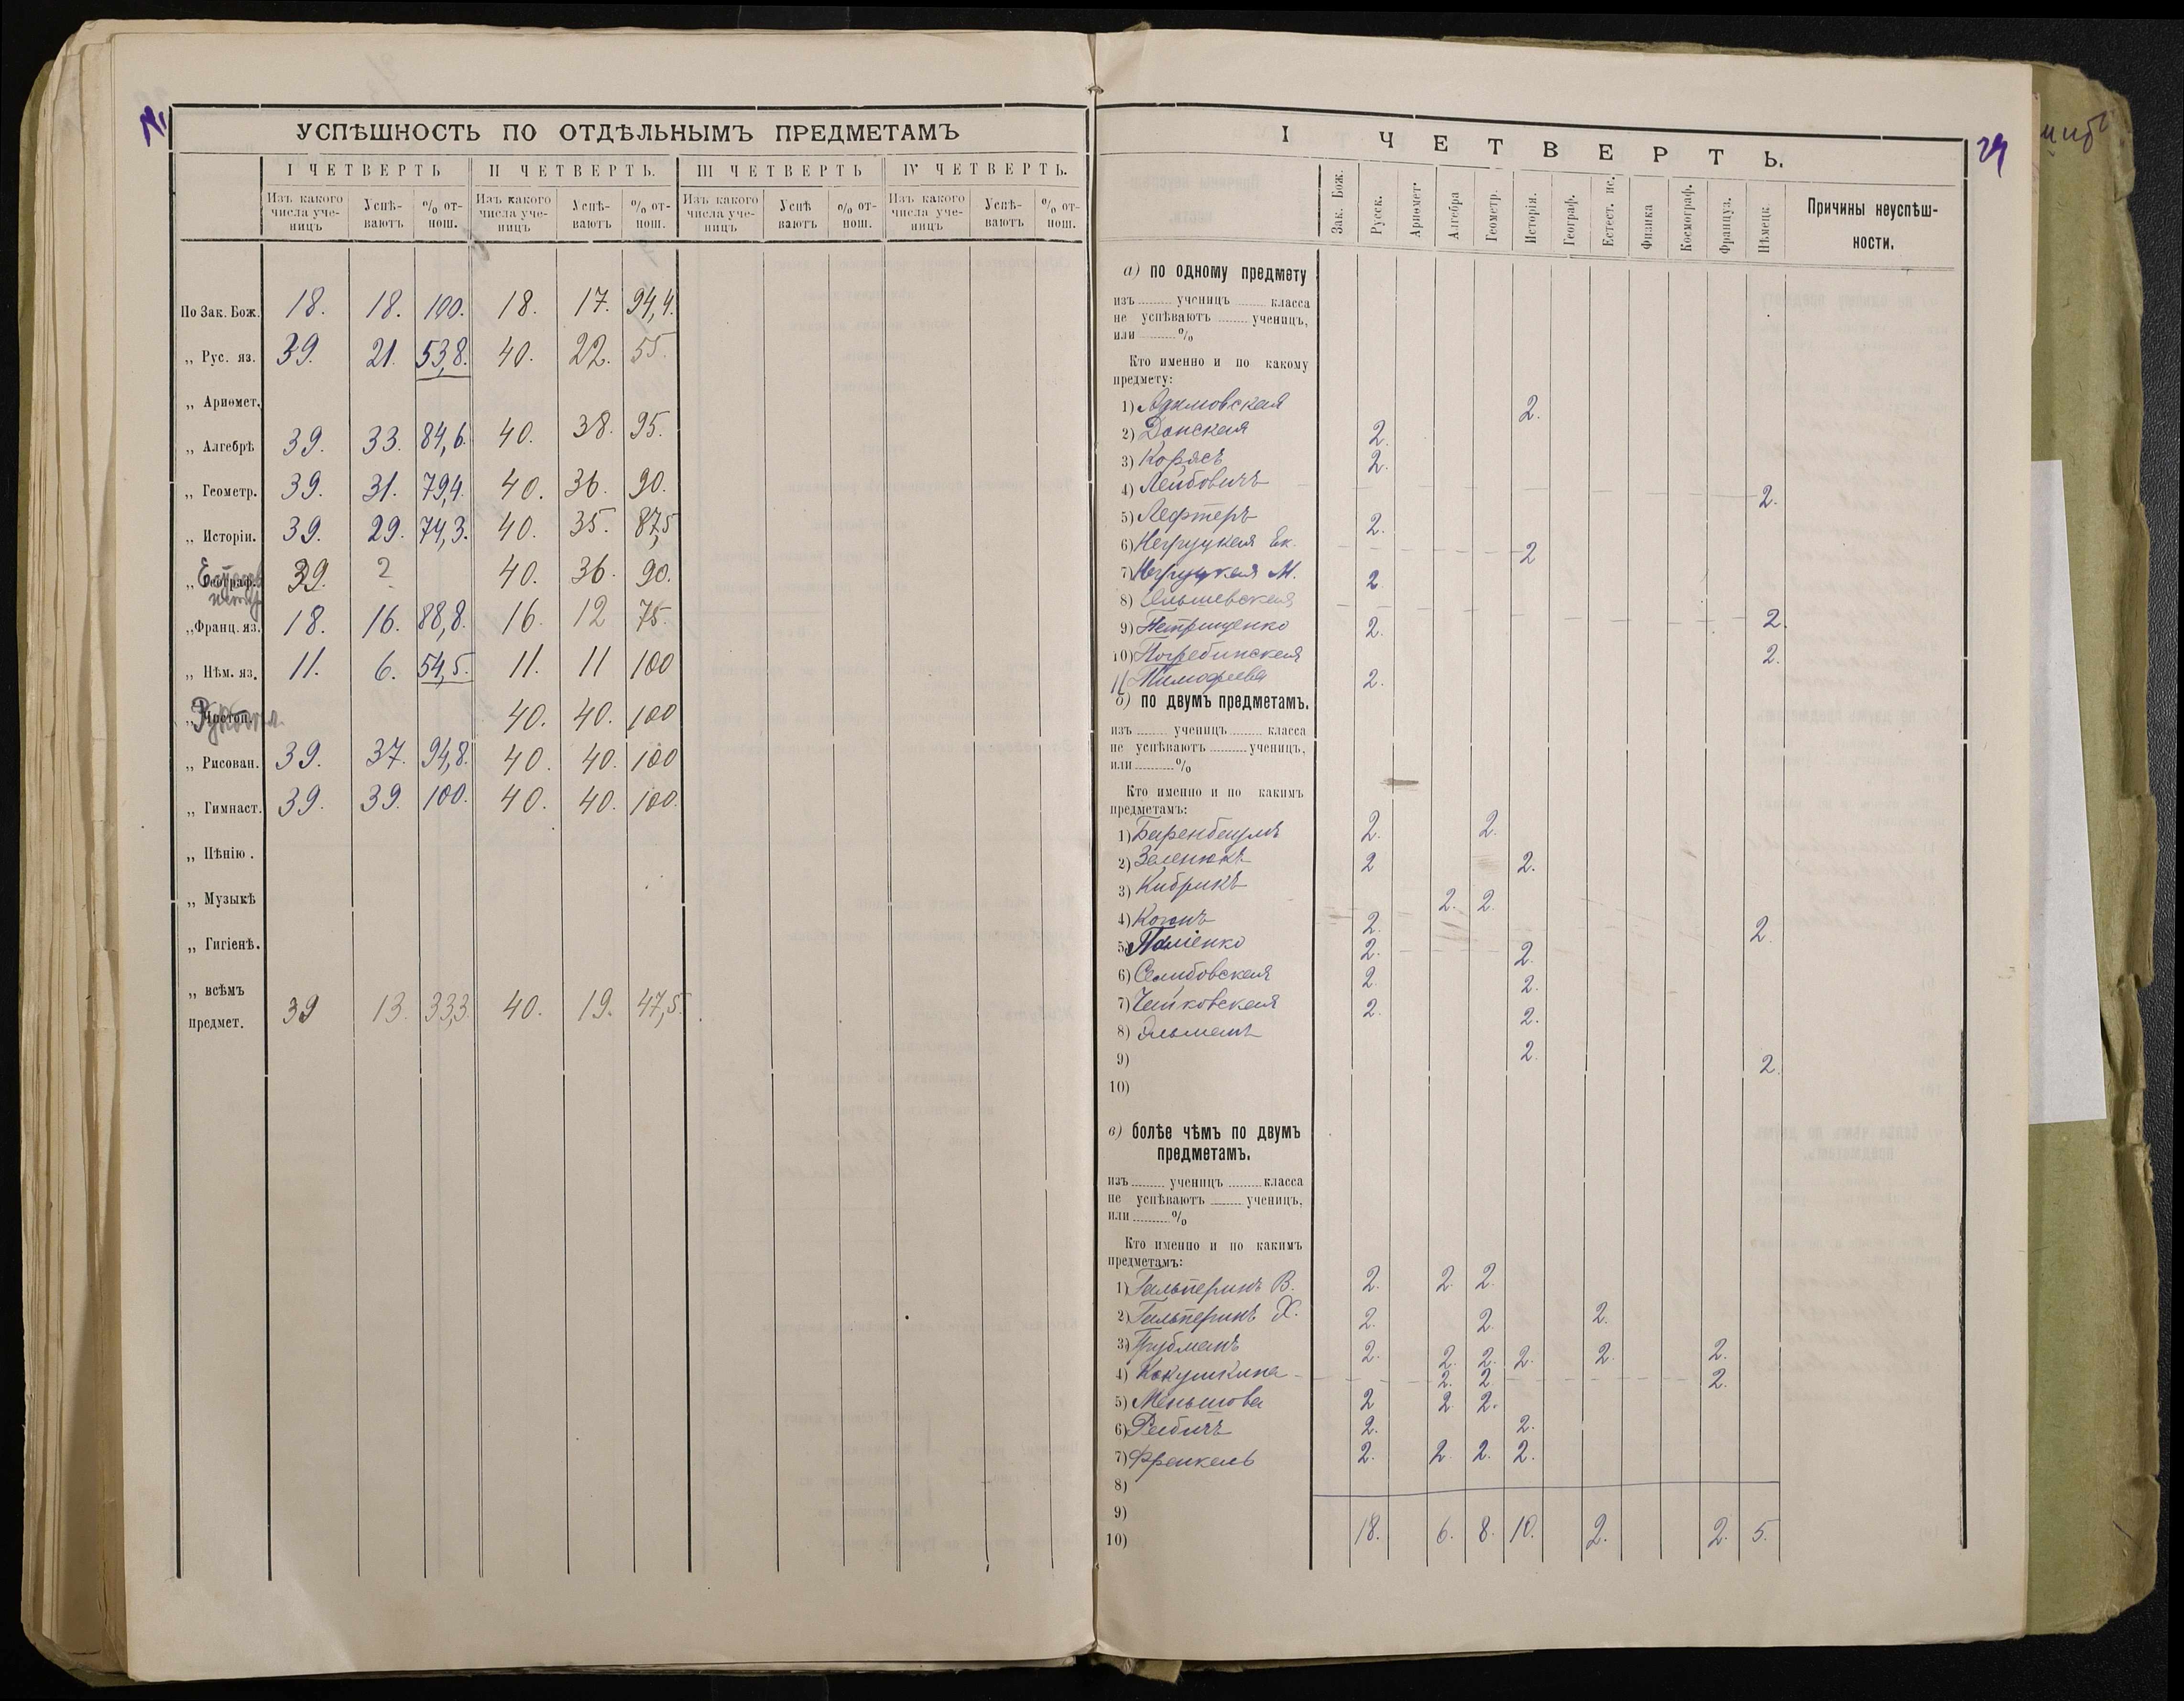 УСПѢШНОСТЬ ПО ОТДѢЛЬНЫМЪ ПРЕДМЕТАМЪ
I ЧЕТВЕРТЬ II ЧЕТВЕРТЬ. III ЧЕТВЕРТЬ IV ЧЕТВЕРТЬ.
Изъ какого числа уче- ницъ Успѣ- ваютъ % от- нош. Изъ какого числа уче- ницъ Успѣ- ваютъ % от- нош. Изъ какого числа уче- ницъ Успѣ ваютъ % от- нош. Изъ какого числа уче- ницъ Успѣ- ваютъ % от- нош.
По Зак. Бож. 18. 18. 100. 18. 17. 94,4.
„ Рус. яз. 39. 21. 53,8. 40. 22. 55.
„ Ариѳмет.
„ Алгебрѣ 39. 33. 84,6. 40. 38. 95.
„ Геометр. 39. 31. 79,4. 40. 36. 90.
„ Исторіи. 39. 29. 74,3. 40. 35. 87,5
„ Географ. 39. 2 40. 36. 90.
„Франц. яз. 18. 16. 88,8. 16. 12 75.
„ Нѣм. яз. 11. 6. 54,5. 11. 11 100
„ Чистоп. 40. 40. 100
„ Рисован. 39. 37. 94,8. 40. 40. 100
„ Гимнаст. 39. 39. 100. 40. 40. 100.
„ Пѣнію .
„ Музыкѣ
„ Гигіенѣ.
„ всѣмъ
предмет. 39 13. 33,3 40. 19. 47,5.
29
I ЧЕТВЕРТЬ.
Зак. Бож. Русск. Ариѳмет. Алгебра Геометр. Исторія. Географ. Естест. ис. Физика Космограф. Француз. Нѣмецк. Причины неуспѣш-
ности.
а) по одному предмету
изъ ученицъ класса
не успѣваютъ ученицъ,
или %
Кто именно и по какому
предмету:
1) Адамовская 2.
2) Донская 2.
3) Корясъ 2.
4) Лейбовичъ 2.
5) Лефтеръ 2.
6) Негруцкая Ек. 2
7) Негруцкая М. 2
8) Ольшевская 2.
9) Петрищенко 2.
10) Погребинская 2.
11 Тимофеева 2.
б) по двумъ предметамъ.
изъ ученицъ класса
не успѣваютъ ученицъ,
или %
Кто именно и по какимъ
предметамъ:
1) Баренбаумъ 2. 2.
2) Зеленюкъ 2 2.
3) Кибрикъ 2. 2.
4) Коганъ 2. 2.
5) Паліенко 2. 2.
6) 2. 2.
7) Чайковская 2. 2.
8) Эльманъ 2. 2.
9)
10)
в) болѣе чѣмъ по двумъ
предметамъ.
изъ ученицъ класса
не успѣваютъ ученицъ,
или %
Кто именно и по какимъ
предметамъ:
1) Гальперинъ В. 2. 2. 2.
2) Гальперинъ Х. 2. 2. 2.
3) Грубманъ 2. 2. 2. 2. 2. 2.
4) Кокушкина 2. 2 2.
5) Меньшова 2 2 2.
6) Рабичъ 2. 2.
7) Френкель 2. 2. 2. 2.
8)
9)
10) 18. 6. 8. 10. 2. 2. 5.